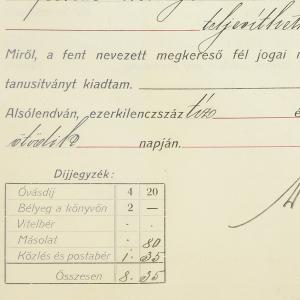 teljesíthet
Miről, a fent nevezett megkereső fél jogai
tanusítványt kiadtam.
Alsólendván, ezerkilenczszáz tiz é
ötödik napján.
Díjjegyzék:
Óvásdíj 4 20
Bélyeg a könyvön 2 —
Vitelbér . .
Másolat . 80
Közlés és postabér 1 . 35
Összesen 8 . 35